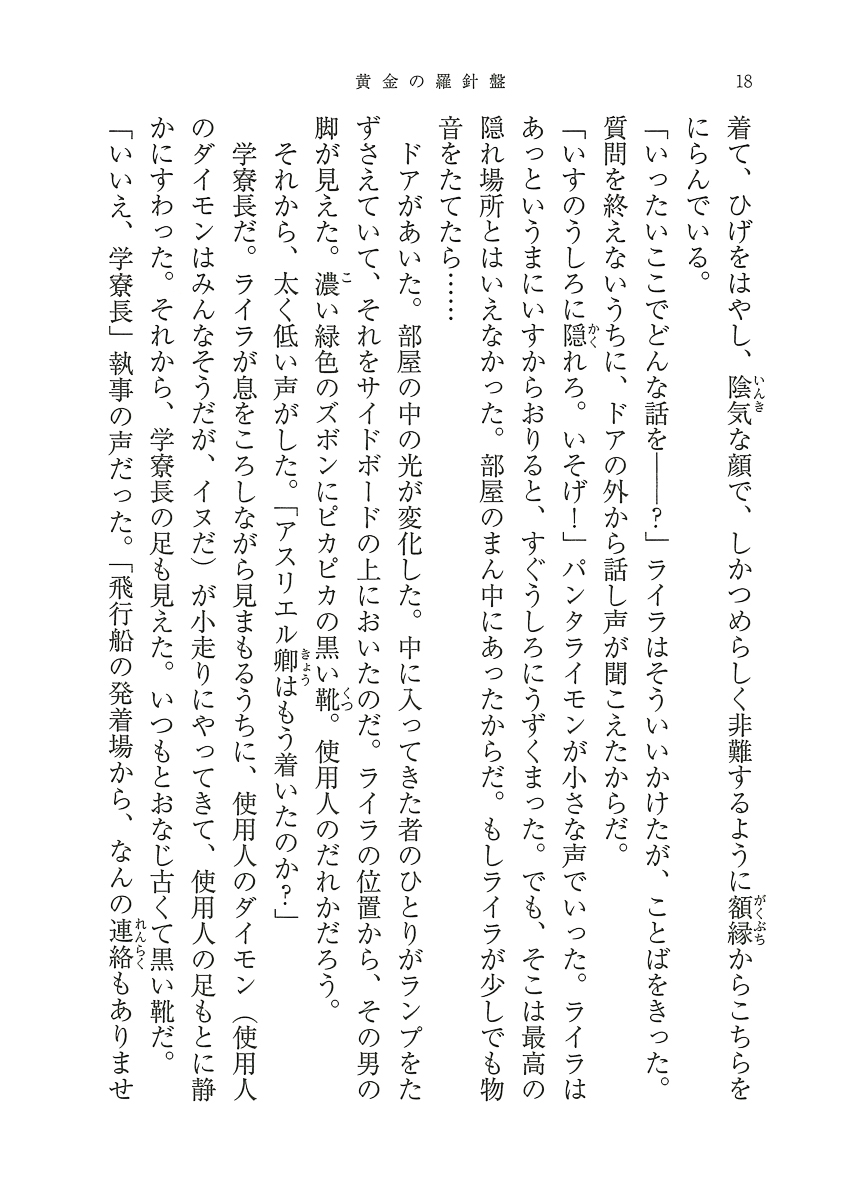 黄金の羅針盤
18
着て、ひげをはやし、陰気な顔で、しかつめらしく非難するように額縁からこちらを
にらんでいる。
「いったいここでどんな話を――？」ライラはそういいかけたが、ことばをきった。
質問を終えないうちに、ドアの外から話し声が聞こえたからだ。
「いすのうしろに隠れろ。いそげ！」パンタライモンが小さな声でいった。ライラは
あっというまにいすからおりると、すぐうしろにうずくまった。でも、そこは最高の
隠れ場所とはいえなかった。部屋のまん中にあったからだ。もしライラが少しでも物
音をたてたら……
ドアがあいた。部屋の中の光が変化した。中に入ってきた者のひとりがランプをた
ずさえていて、それをサイドボードの上においたのだ。ライラの位置から、その男の
脚が見えた。濃い緑色のズボンにピカピカの黒い靴。使用人のだれかだろう。
それから、太く低い声がした。「アスリエル卿はもう着いたのか？」
学寮長だ。ライラが息をころしながら見まもるうちに、使用人のダイモン（使用人
のダイモンはみんなそうだが、イヌだ）が小走りにやってきて、使用人の足もとに静
かにすわった。それから、学寮長の足も見えた。いつもとおなじ古くて黒い靴だ。
「いいえ、学寮長」執事の声だった。「飛行船の発着場から、なんの連絡もありませ